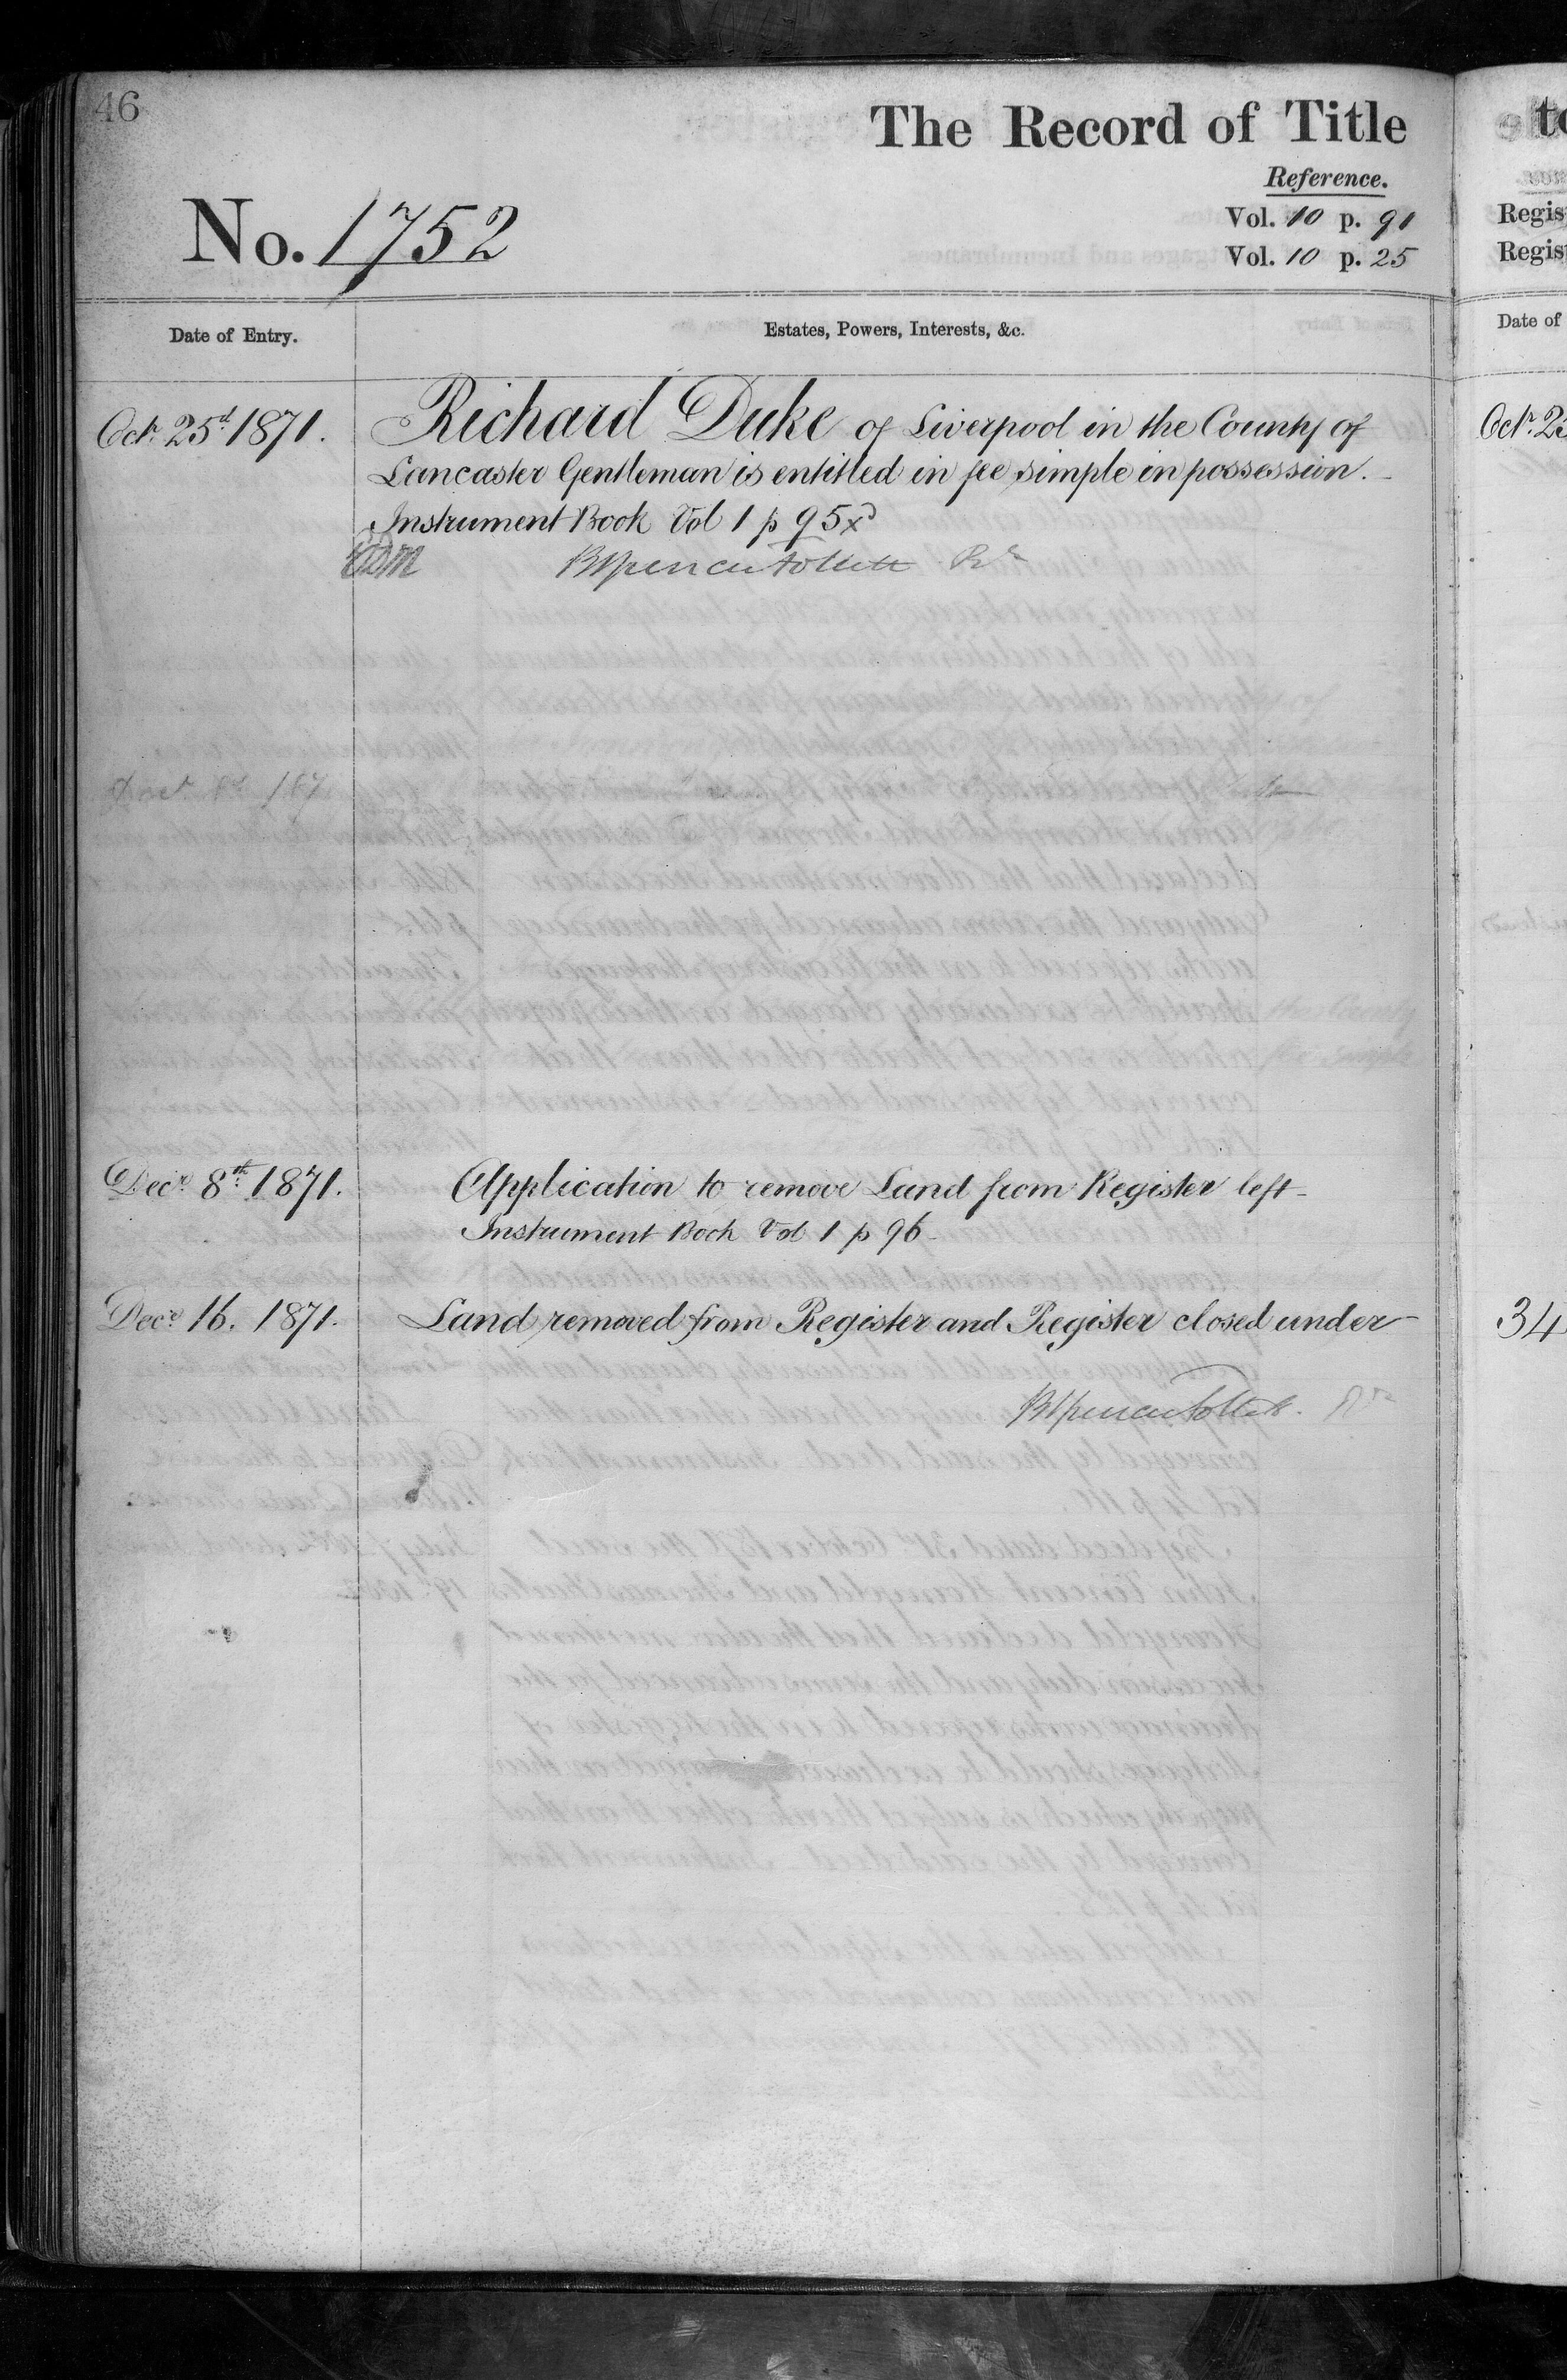 46
The Record of Title
Reference.
No. 1752
Vol. 10 p. 91
Vol. 10 p. 25
Date of Entry.
Estates, Powers, Interests, &c.
Oct. 25d 1871.
Richard Duke of Liverpool in the County of
Lancaster Gentleman is entitled in fee simple in possession.
Instrument Book Vol 1 p 95
Decr. 8th 1871.
Application to remove Land from Register left
Instrument Book Vol 1 p 96
Decr. 16. 1871.
Land removed from Register and Register closed under
Regis
Regis
Date of
Octr. 25
34